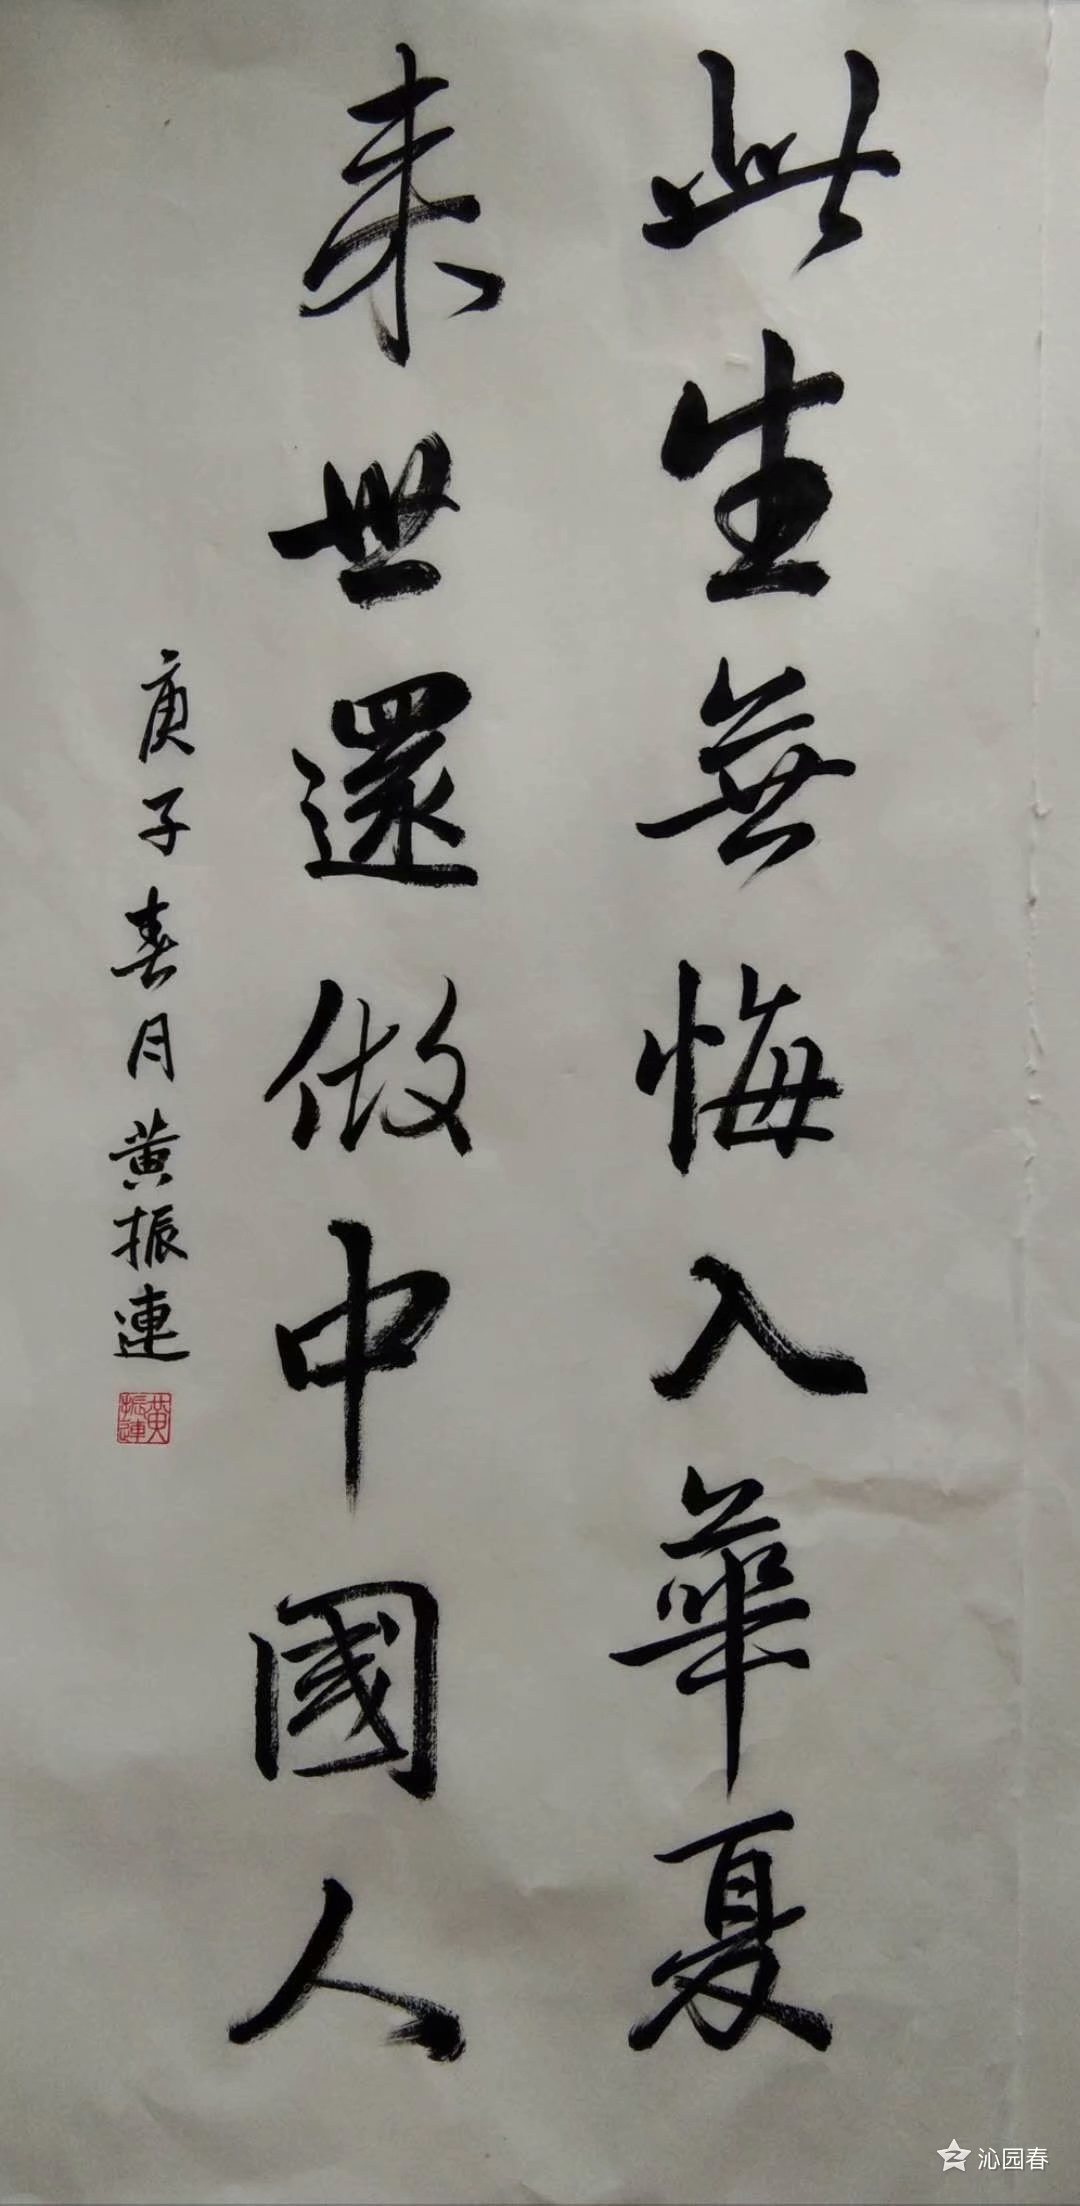 此生無悔入華夏
来世還做中國人
庚子春月黄振連
黄振連
沁园春